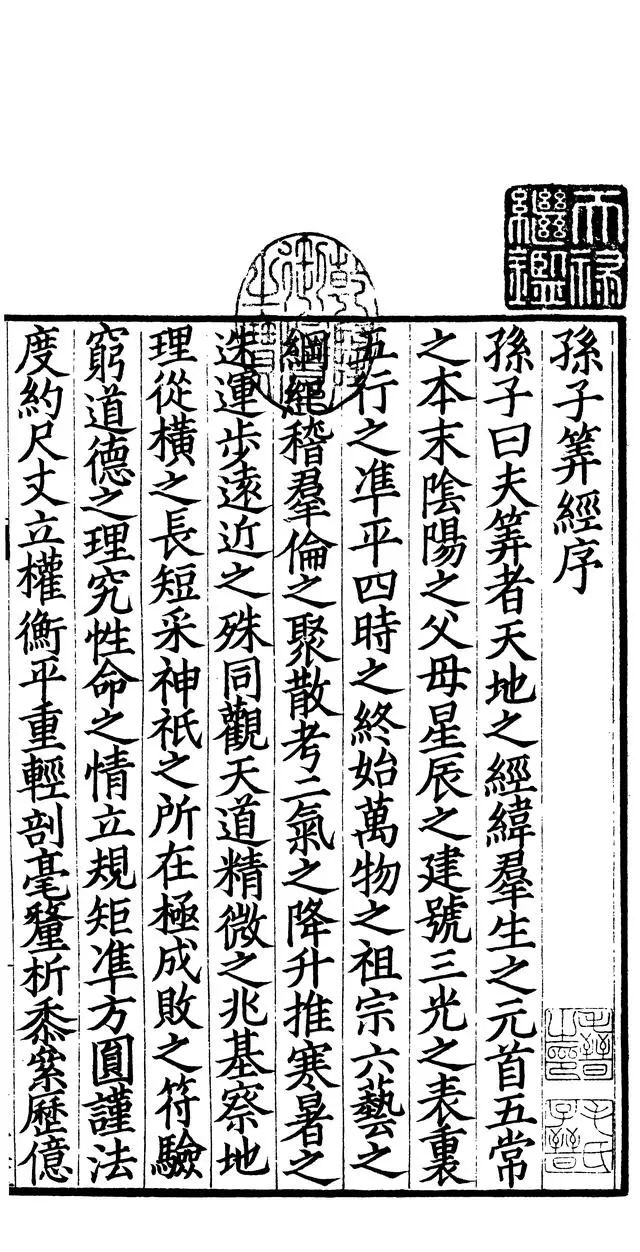 孫子筭經序
孫子曰夫筭者天地之經緯羣生之元首五常
之本末陰陽之父母星辰之建號三光之表裏
五行之準平四時之終始萬物之祖宗六藝之
綱紀稽羣倫之聚散考二氣之降升推寒暑之
迭運步遠近之殊同觀天道精微之兆基察地
理從橫之長短采神祇之所在極成敗之符驗
窮道德之理究性命之情立規矩準方圓謹法
度約尺丈立權衡平重輕剖毫釐析黍絫歷億
天祿
繼鑑
乾隆
御覽
之寶
毛晉
之印
毛氏
子晉